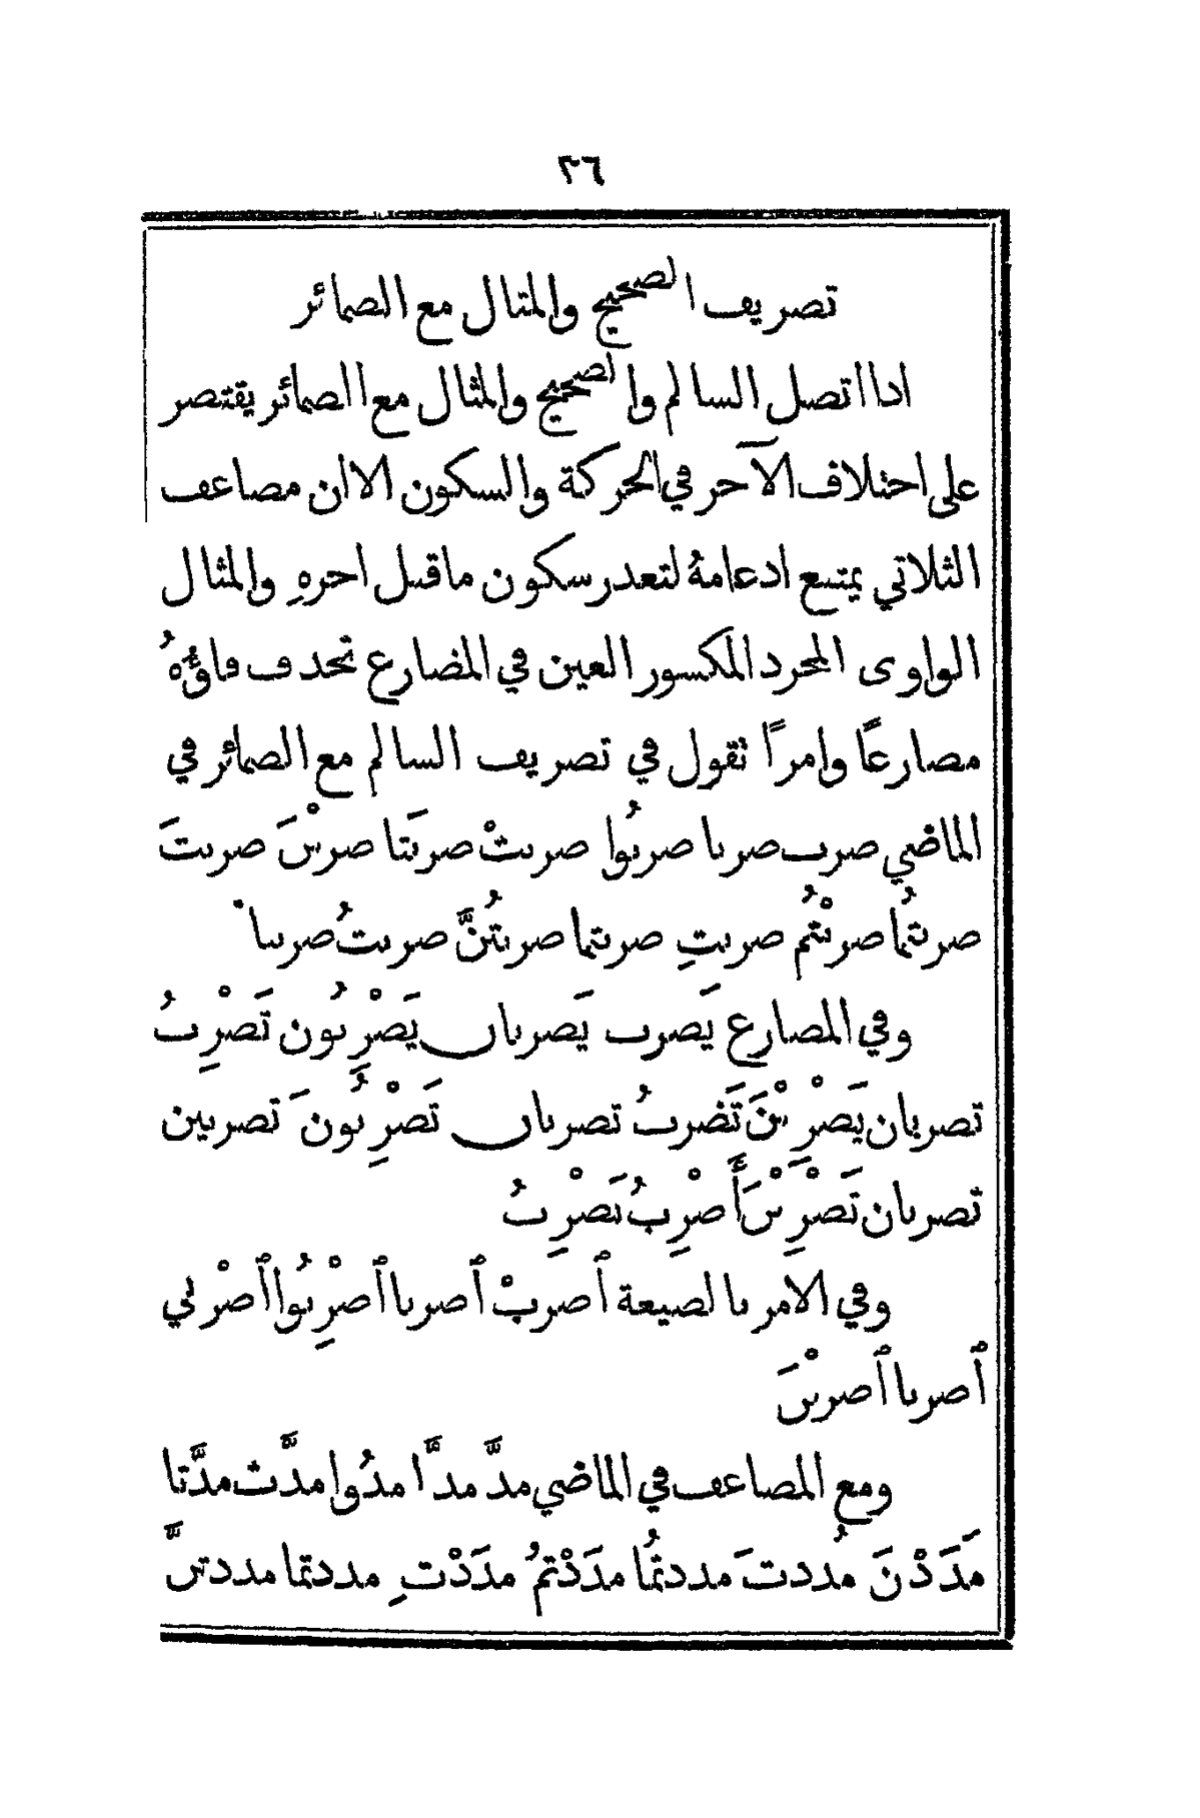 ٢٦
تصريف الصحيح والمثال مع الضمائر
اذا اتصل السالم والصحيح والمثال مع الضمائر يقتصر
على اختلاف الآخر في الحركة والسكون الا ان مضاعف
الثلاثي يمتنع ادغامهُ لتعذر سكون ما قبل اخرهِ والمثال
الواوى المجرد المكسور العين في المضارع تحذف فاؤُهُ
مضارعًا وامرًا تقول في تصريف السالم مع الضمائر في
الماضي ضرب ضربا ضربُوا ضربتْ ضربَتا ضربْنَ ضربتَ
ضربتُما ضربْتُم ضربتِ ضربتما ضربتُنَّ ضربتُ ضربنا
وفي المضارع يَضرب يَضربان يَضْرِبُون تَضْرِبُ
تضربان يَضْرِبْنَ تَضربُ تضربان تَضْرِبُونَ تضربين
تضربان تَضْرِبْنَ أَضْرِبُ نَضْرِبُ
وفي الامر بالصيغة ٱضربْ ٱضربا ٱضْرِبُوا ٱضْربي
ٱضربا ٱضربْنَ
ومع المضاعف في الماضي مدَّ مدَّا مدُّوا مدَّت مدَّتا
مَدَدْنَ مُددتَ مددتُما مدَدْتمُ مدَدْتِ مددتما مددتنَّ